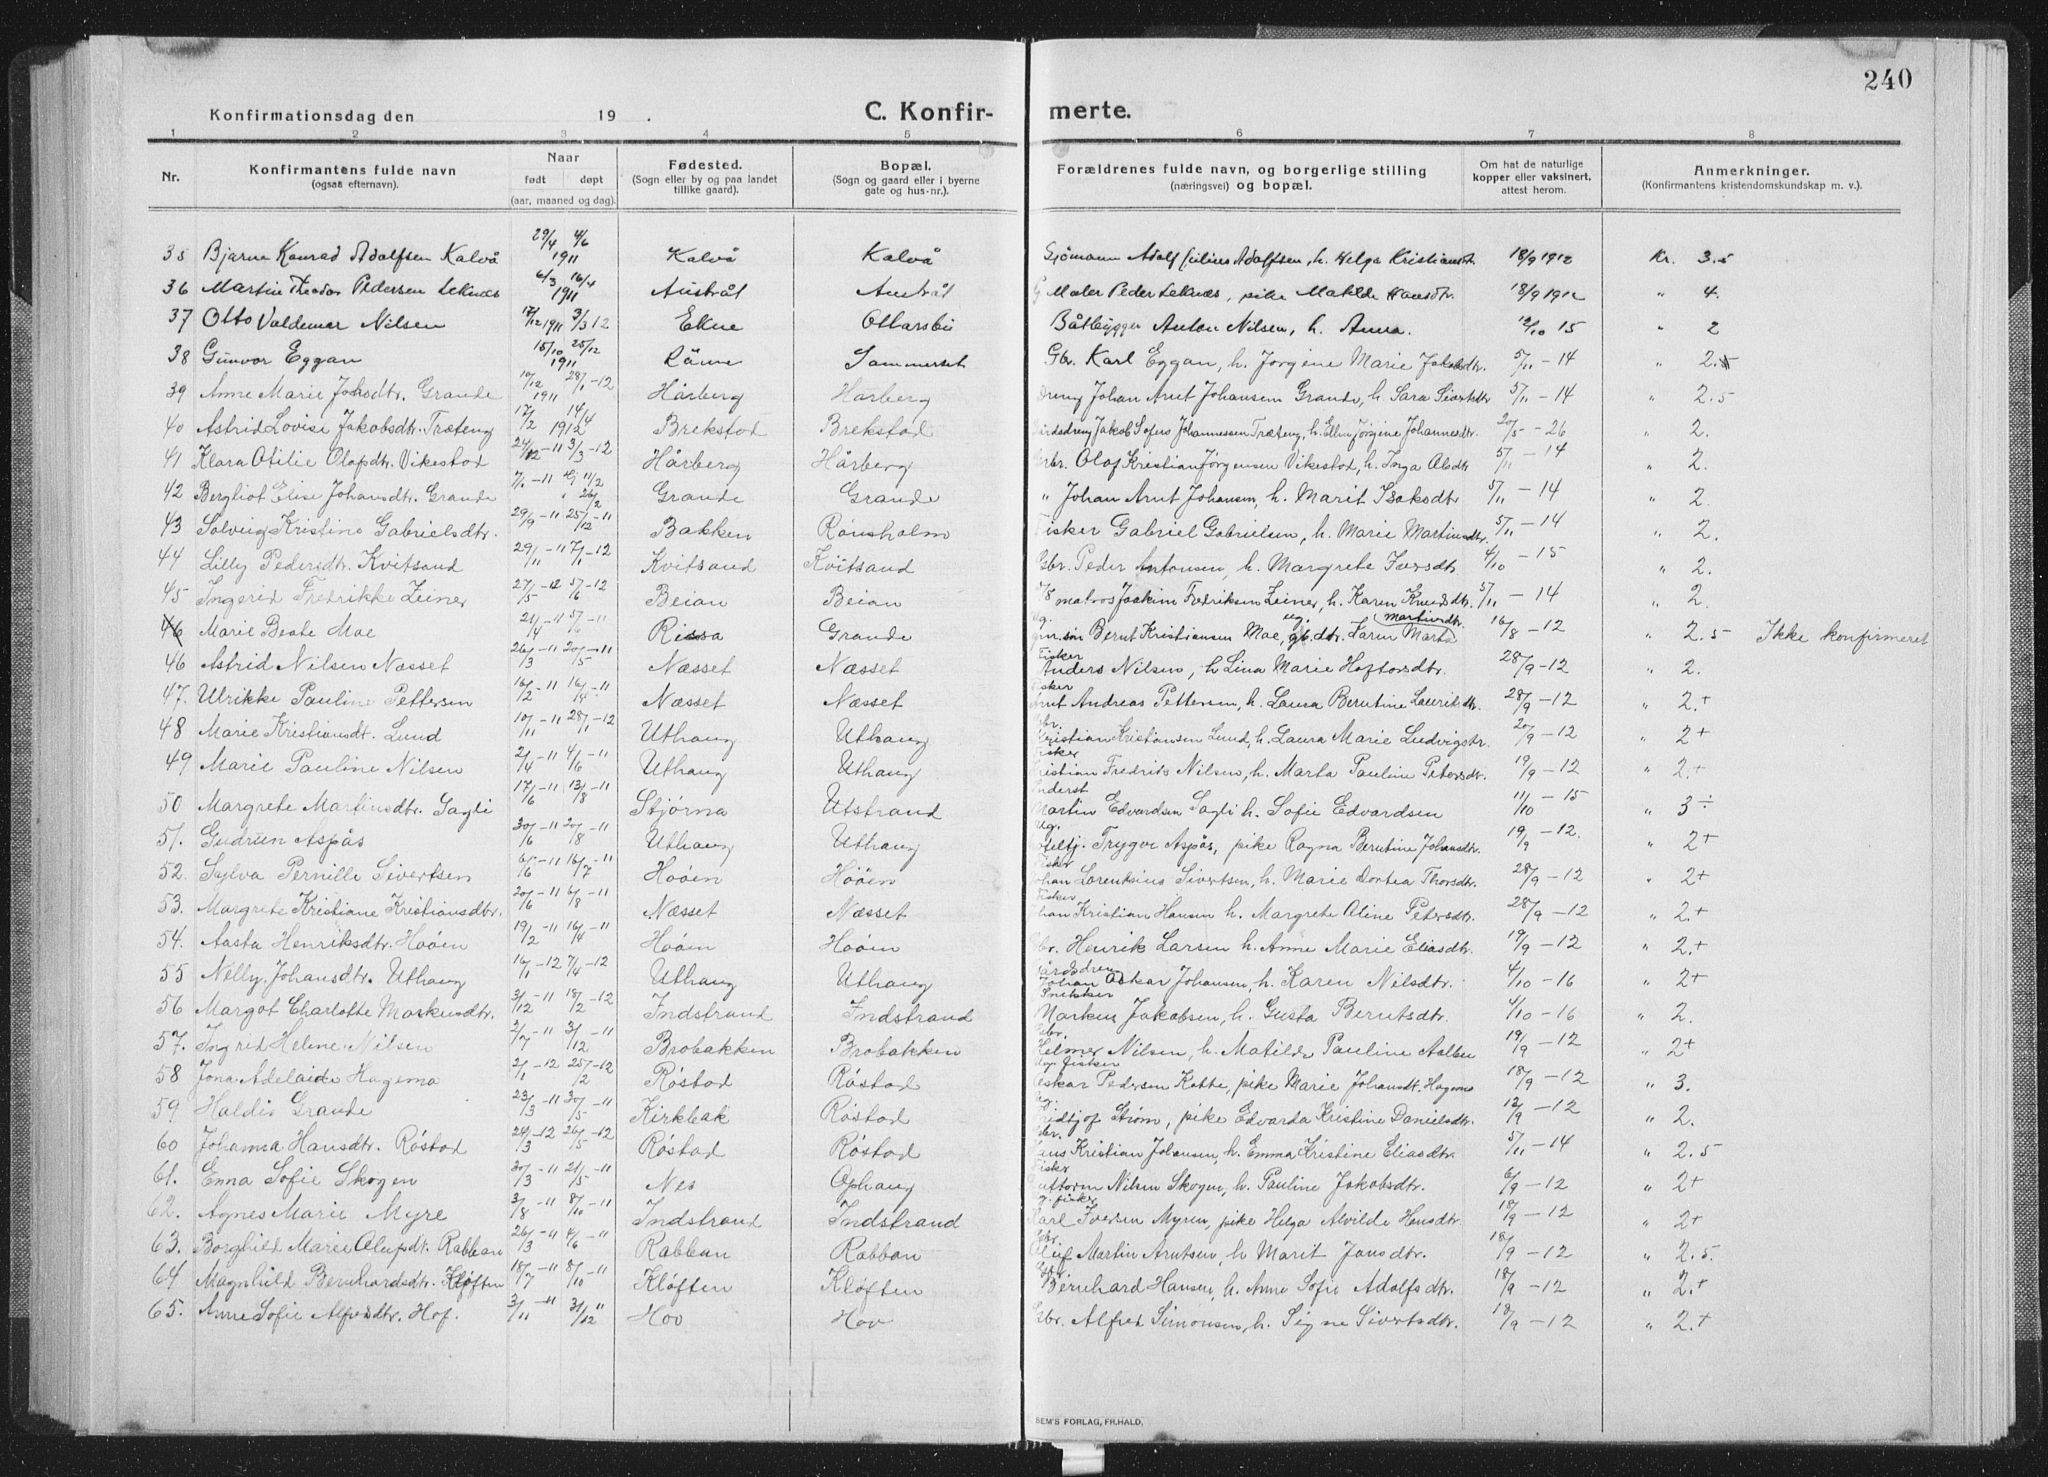 240
Konfirmationsdag den 19 . C. Konfir- merte.
1 2 3 4 5 6 7 8
Nr. Konfirmantens fulde navn (ogsaa efternavn). Naar født døpt (aar, maaned og dag). Fødested. (Sogn eller by og paa landet tillike gaard). Bopæl. (Sogn og gaard eller i byerne gate og hus-nr.). Forældrenes fulde navn, og borgerlige stilling (næringsvei) og bopæl. Om hat de naturlige kopper eller vaksinert, attest herom. Anmerkninger. (Konfirmantens kristendomskundskap m. v.).
35 Bjarne Konrad Adolfsen Kalvå 29/4 4/6 1911 Kalvå Kalvå Sjømann Adolf Julius Adolfsen, h. Helga Kristiansdt. 18/9 1912 Kr. 3.5
36 Martin Theodor Pedersen Leknes 6/3 16/4 1911 Austråt Austråt Maler Peder Leknæs, pike Matilde Hansdtr. 18/9 1912 " 4.
37 Otto Valdemar Nilsen 17/12 1911 3/3 12 Ekne Ottarsbo Båtbygger Anton Nilsen, h. Anna. 12/10 15 " 2
38 Gunvor Eggan 15/10 25/12 1911 Råne Sommerset Gbr. Karl Eggan, h. Jørgine Marie Jakobsdtr. 5/11 - 14 " 2.
39 Anne Marie Johsdtr. Grande 10/12 1911 28/1 - 12 Hårberg Hårberg Dreng Johan Arnt Johansen Grande, h. Sara Sivertsdtr 5/11 - 14 " 2.5
40 Astrid Lovise Jakobsdtr. Træteng 17/2 14/4 1912 Brekstad Brekstad Gårdsdreng Jakob Sofus Johannessen Træteng, h. Ellen Jørgine Johannesdtr. 20/5 - 26 " 2.
41 Klara Otilie Olafsdtr. Vikestad 24/12 - 11 3/3 - 12 Hårberg Hårberg Gbr. Olaf Kristian Jørgensen Vikestad, h. Inga Olsdtr 5/11 - 14 " 2.
42 Bergliot Elise Johansdtr. Grande 7/1 - 11 11/2 26/2 Grande Grande " Johan Arnt Johansen, h. Marit Isaksdtr 5/11 - 14 " 2.
43 Solveig Kristine Gabrielsdtr. 29/9 - 11 25/12 - 11 Bakken Rønsholm Fisker Gabriel Gabrielsen, h. Marie Martinsdtr. 5/11 - 14 " 2.
44 Lilly Pedersdtr. Kvitsand 29/11 - 11 7/1 - 12 Kvitsand Kvitsand Gbr. Peder Antonsen, h. Margrete Iversdtr. 4/10 - 15 " 2.
45 Ingerid Fredrikke Zeiner 27/5 - 12 5/6 - 12 Beian Beian matros Joakim Fredriksen Zeiner, h. Karen Knudsdtr. 5/11 - 14 " 2.
46 Marie Beate Moe 21/4 - 11 5/6 - 11 Rissa Grande Ug. søn Bernt Kristiansen Moe, ug. gb. dtr. Karen Marta Martinsdtr. 16/8 - 12 " 2.5 Ikke konfirmeret
46 Astrid Nilsen Næsset 26/3 - 11 20/5 - 11 Næsset Næsset Fisker Anders Nilsen, h Lina Marie Hoftorsdtr. 28/9 - 12 " 2.
47. Ulrikke Pauline Pettersen 16/2 - 11 16/4 - 11 Næsset Næsset Fisker Arnt Andreas Pettersen, h. Laura Berntine Lauritsdtr. 28/9 - 12 " 2+
48 Marie Kristiansdt. Lund 10/11 - 11 28/1 - 12 Uthaug Uthaug Gbr. Kristian Kristiansen Lund, h. Laura Marie Ludvigstr. 20/9 - 12 " 2+
49 Marie Pauline Nilsen 2/4 - 11 4/6 - 11 Uthaug Uthaug Fisker Kristian Fredriks Nilsen, h. Marta Pauline Petersdtr. 19/9 - 12 " 2+
50 Margrete Martinsdtr. Sagli 17/6 - 11 13/8 - 11 Stjørna Utstrand Inderst Martin Edvardsen Sagli h. Sofie Edvardsen 11/10 - 15 " 3÷
51. Gudrun Aspås 30/6 - 11 20/8 - 11 Uthaug Uthaug Ug. Trygve Aspås, pike Ragna Berntine Johansdtr. 19/9 - 12. " 2+
52. Sylva Pernille Sivertsen 6/6 - 11 16/7 - 11 Høøen Høøen Fisker Johan Lorenksius Sivertsen, h. Marie Dortea Thorsdtr. 28/9 - 12 " 2+
53. Margrete Kristiane Kristiansdtr. 20/6 - 11 6/8 - 11 Næsset Næsset Fisker Johan Kristian Hansen h. Margrete Oline Petersdtr. 28/9 - 12 " 2+
54. Aasta Henriksdtr. Høøen 19/2 - 11 16/4 - 11 Høøen Høøen Gbr. Henrik Larsen h. Anne Marie Eliasdtr. 19/9 - 12 " 2+
55 Nelly Johansdtr. Uthaug 16/1 - 12 7/4 - 12 Uthaug Uthaug Gårdsdreng Johan Oskar Johansen, h. Karen Nilsdtr. 4/10 - 16 " 2+
56 Margot Charlotte Markusdtr. 3/12 - 11 18/2 - 12 Indstrand Indstrand Snekker Markus Jakobsen, h. Gusta Berntsdtr. 4/10 - 16 " 2.
57. Ingrid Helene Nilsen 2/7 - 11 3/12 - 11 Brobakken Brobakken Gbr. Helmer Nilsen, h. Matilde Pauline Aalber 19/9 - 12 " 2+
58 Jona Adelaide Hagemo 2/1 - 12 25/2 - 12 Røstad Røstad Ugv. fisker Oskar Pedersen Kotte, pike Marie Johansdt. Hagemo 18/9 - 12 " 3.
59 Haldis Grande 23/3 - 11 30/5 - 11 Kirkbak Røstad Ug. Fridtjof Strøm, pike Edvarda Kristine Danielsdtr. 12/9 - 12 " 2.
60 Johanna Hansdtr. Røstad 24/3 - 12 26/5 - 12 Røstad Røstad Gbr. Hans Kristian Johansen, h. Emma Kristine Eliasdtr. 5/11 - 14 " 2.5
61. Enna Sofie Skogen 30/3 - 11 21/5 - 11 Nes Ophaug Fisker Guttorm Nilsen Skogen, h. Pauline Jakobsdtr. 6/9 - 12 " 2+
62. Agnes Marie Myre 3/8 - 11 8/10 - 11 Indstrand Indstrand Ug. fisker Karl Iversen Myren, pike Helga Alvilde Hansdtr. 18/9 - 12 " 2+
63. Borghild Marie Olufsdt. Rabban 26/3 - 11 4/6 - 11 Rabban Rabban Gbr. Oluf Martin Arntsen, h Marit Jonsdtr. 18/9 - 12 " 2.5.
64 Magnhild Bernhardsdtr. Kløften 18/7 - 11 8/10 - 11 Kløften Kløften Gbr. Bernhard Hansen, h. Anne Sofie Adolfsdtr. 18/9 - 12 " 2.+
65. Anne Sofie Alfredsdtr. Hof. 3/11 - 11 31/12 " Hov Hov Gbr. Alfred Simonsen, h. Signe Sivertsdtr. 18/9 - 12 " 2.+
SEM'S FORLAG, FR.HALD.